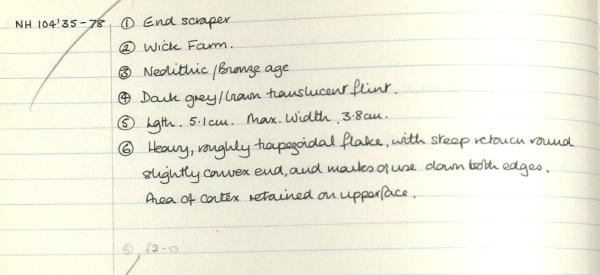 NH 104'35-78 ① End scraper
② Wick Farm.
③ Neolithic/Bronze age
④ Dark grey/brown translucent flint.
⑤ Lgth. 5.1cm. Max. Width. 3.8cm.
⑥ Heavy, roughly trapezoidal flake, with steep retouch round
slightly convex end, and marks of use down both edges.
Area of cortex retained on upperface.